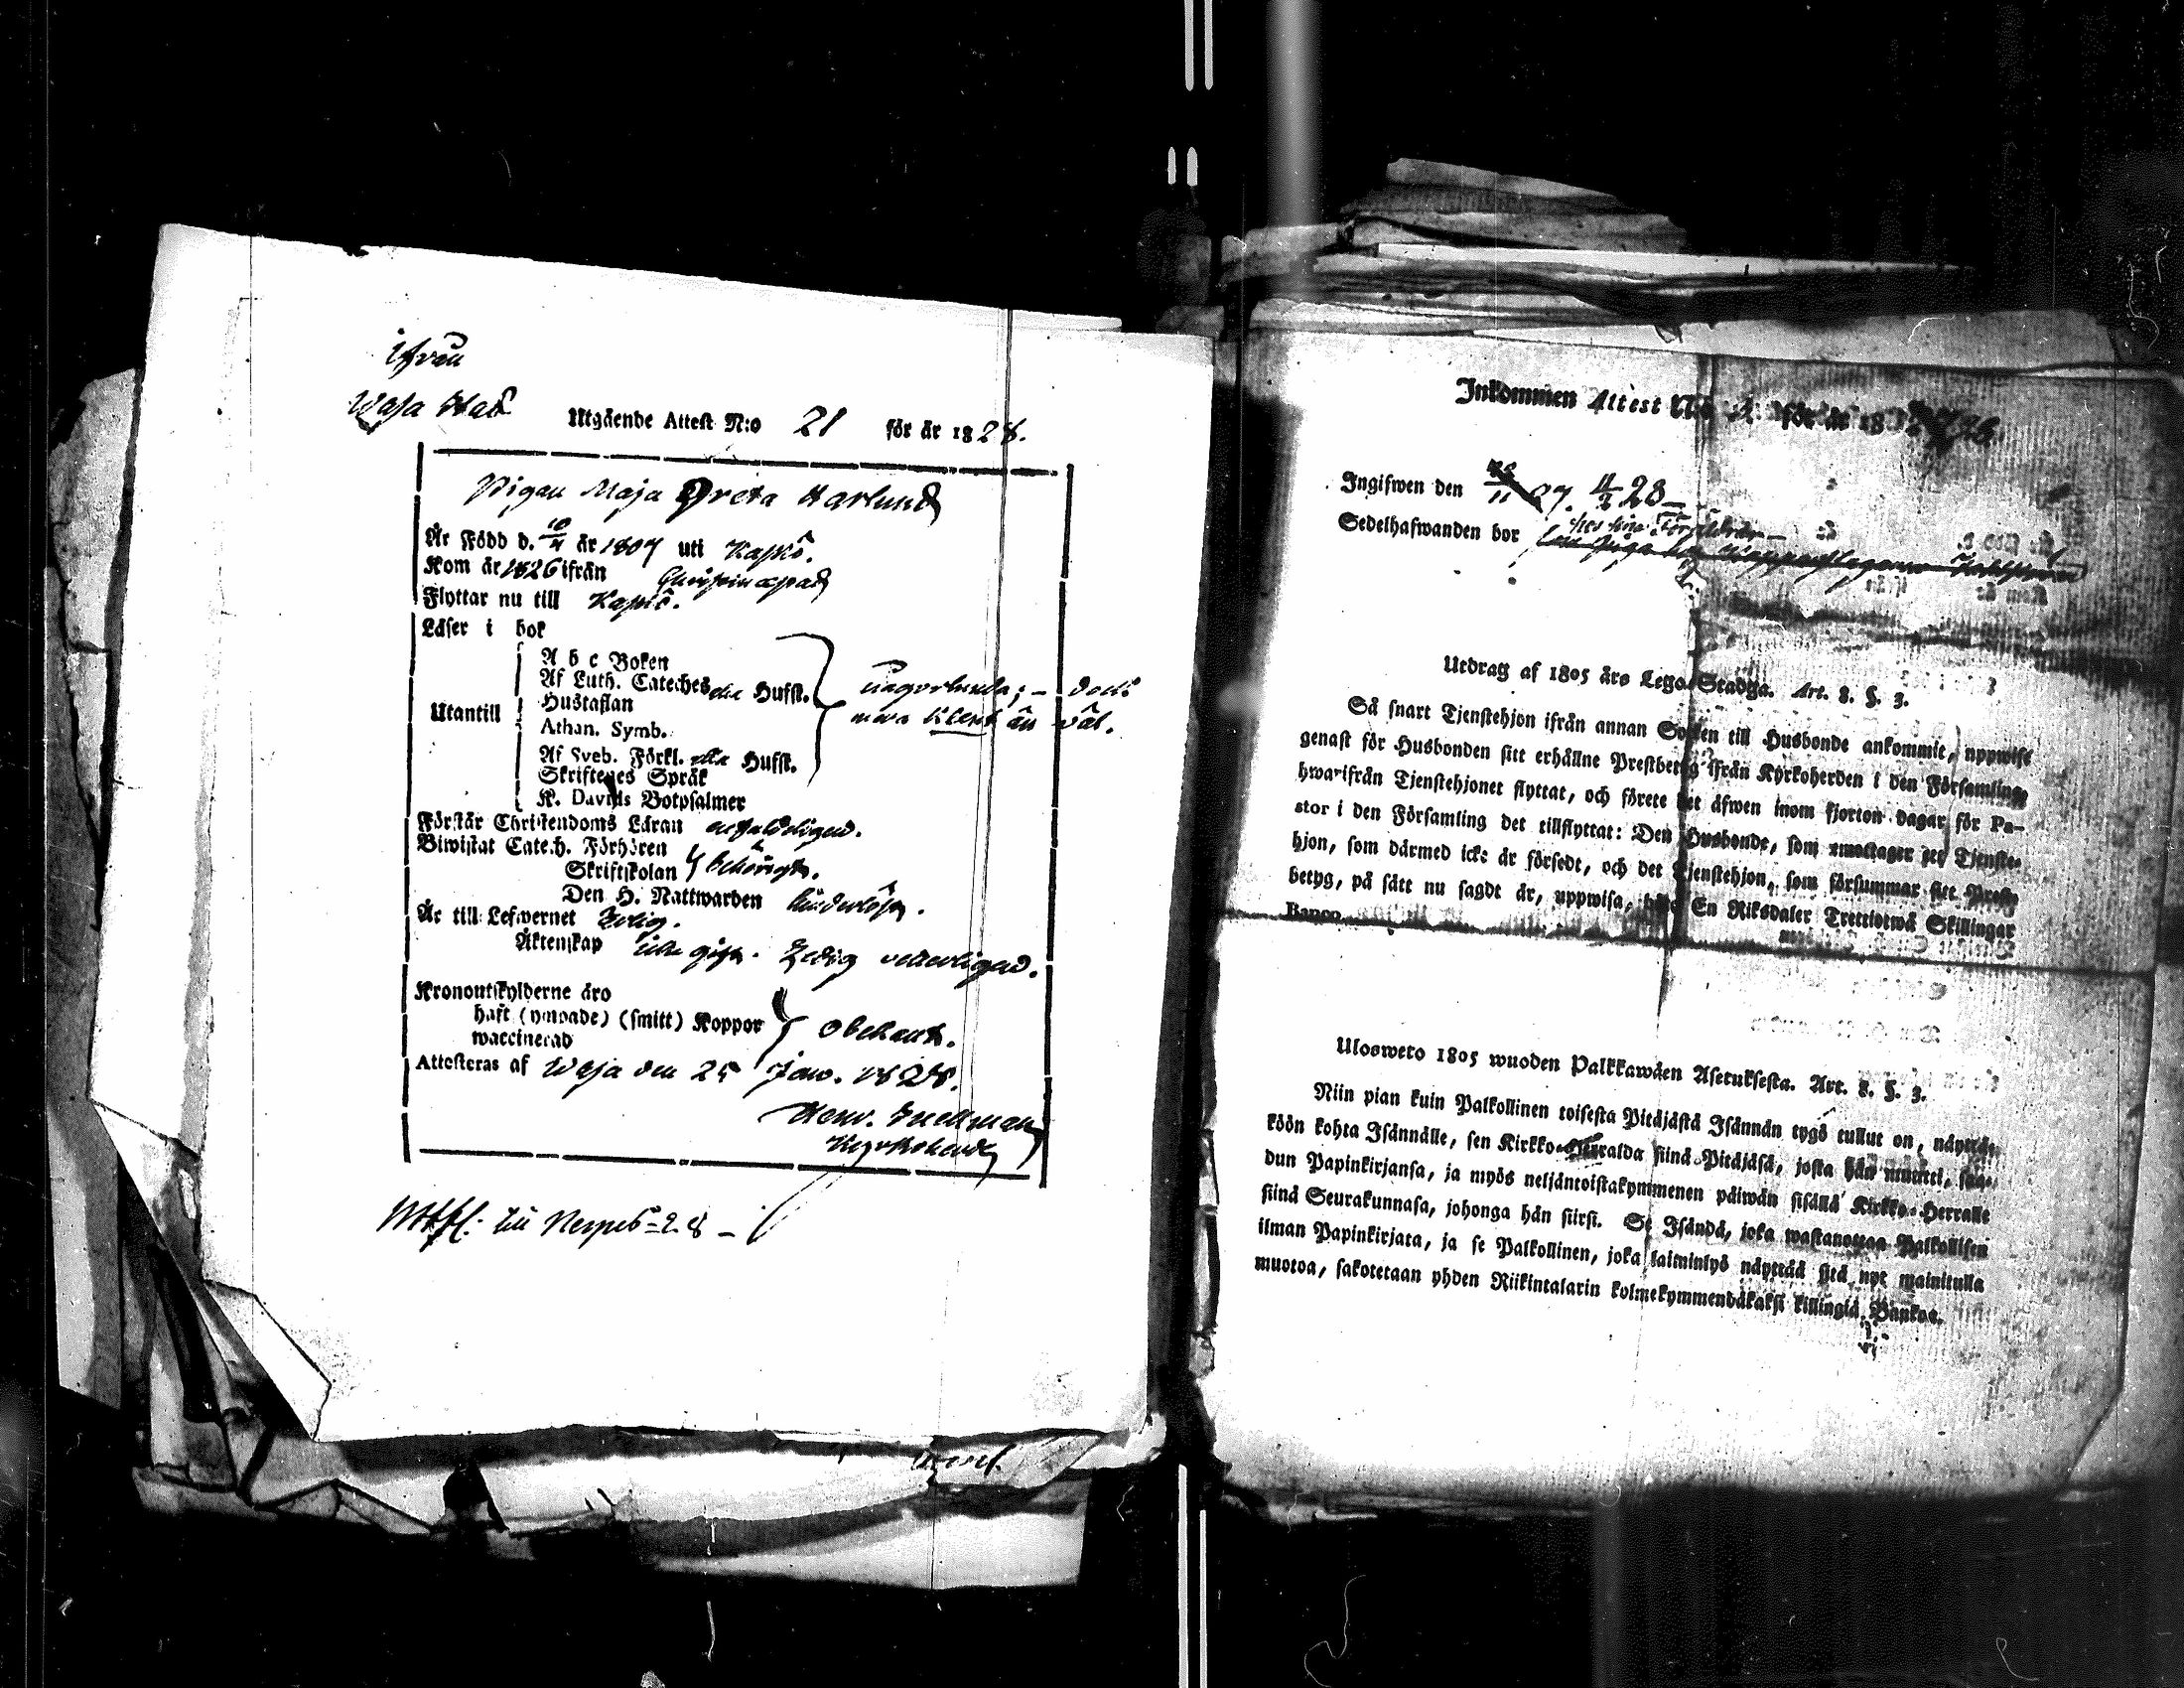 ifrån
Wasa Stad
Utgående Attest N:o 21 för år 1828.
Pigan Maja Greta Harlund
Är Född d. 10/4 år 1807 uti Kaskö.
Kom år 1826 ifrån Christinæstad
Flyttar nu till Kaskö.
Läser i bok
A b c Boken
Af Luth. Cateches eller Husst.
Utantill
Hustaflan
Athan. Symb.
någorlunda; – dock
mera klent än väl.
Af Sveb. Förkl. eller Husst.
Skriftenes Språk
K. Davids Botpsalmer
Förstår Christendoms Läran enfaldeligen.
Biwistat Catech. Förhören
Skriftskolan behörigt.
Den H. Nattwarden
Är till Lefwernet Ärlig.
Äktenskap icke gift. Ledig veterligen.
Kronoutskylderne äro
haft (ympade) (smitt) Koppor
waccinerad
obekant.
Attesteras af Wasa den 25 Janv. 1828.
Henr. Snellman
Kyrkoherde
Inkommen Attest N:o för år 18
Ingifwen den 4/2 28 –
Sedelhafwanden bor hos sina Föräldrar –
Utdrag af 1805 års Lego-Stadga. Art. 8. §. 3.
Så snart Tjenstehjon ifrån annan Socken till Husbonde ankommit, uppwise
genast för Husbonden sitt erhållne Prestbetyg ifrån Kyrkoherden i den Församling,
hwarifrån Tjenstehjonet flyttat, och förete det äfwen inom fjorton dagar för Pa-
stor i den Församling det tillflyttat: Den Husbonde, som emottager sej Tjenste-
hjon, som därmed icke är försedt, och det Tjenstehjon, som försummar sitt Prest-
betyg, på sätt nu sagdt är, uppwisa, böte En Riksdaler Trettiotwå Skillingar
Banco.
Ulosweto 1805 wuoden Palkkawäen Asetuksesta. Art. 8. §. 3.
Niin pian kuin Palkollinen toisesta Pitäjästä Isännän tygö tullut on, näyttä-
köön kohta Isännälle, sen Kirkko-Herralda siinä Pitäjäsä, josta hän muutti, saa-
dun Papinkirjansa, ja myös neljäntoistakymmenen päiwän sisällä Kirkko-Herralle
siinä Seurakunnasa, johonga hän siirsi. Se Isändä, joka wastanottaa Palkollisen
ilman Papinkirjata, ja se Palkollinen, joka laiminlyö näyttää sitä nyt mainitulla
muotoa, sakotetaan yhden Riikintalarin kolmekymmendäkaksi killingiä Bankoa.